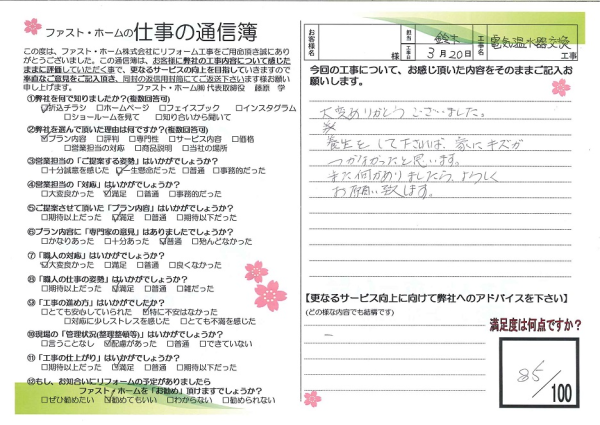 ファスト・ホームの仕事の通信簿
この度は、ファスト・ホーム株式会社にリフォーム工事をご用命頂き誠にあり
がとうございました。この通信簿は、お客様に弊社の工事内容について感じた
ままに評価していただく事で、更なるサービスの向上を目指していきますので
率直なご意見をご記入頂き、同封の返信用封筒にてご返送下さいます様お願い
申し上げます。
ファスト・ホーム㈱ 代表取締役 藤原 学
①弊社を何で知りましたか？(複数回答可)
☑折込チラシ □ホームページ □フェイスブック □インスタグラム
□ショールームを見て □知り合いから聞いて
②弊社を選んで頂いた理由は何ですか？(複数回答可)
☑プラン内容 □評判 □専門性 □サービス内容 □価格
□営業担当の対応 □商品説明 □当社の場所
③営業担当の「ご提案する姿勢」はいかがでしょうか？
□十分誠意を感じた ☑一生懸命だった □普通 □事務的だった
④営業担当の「対応」はいかがでしょうか？
□大変良かった ☑満足 □普通 □事務的だった
⑤ご提案させて頂いた「プラン内容」はいかがでしょうか？
□期待以上だった ☑満足 □普通 □期待以下だった
⑥プラン内容に「専門家の意見」はありましたでしょうか？
□かなりあった □十分あった ☑普通 □殆んどなかった
⑦「職人の対応」はいかがでしょうか？
☑大変良かった □満足 □普通 □良くなかった
⑧「職人の仕事の姿勢」はいかがでしょうか？
□期待以上だった □満足 ☑普通 □雑だった
⑨「工事の進め方」はいかがでしたか？
□とても安心していられた ☑特に不安はなかった
□対応に少しストレスを感じた □とても不満を感じた
⑩現場の「管理状況(整理整頓等)」はいかがでしょうか？
□言うことなし ☑配慮があった □普通 □できていない
⑪「工事の仕上がり」はいかがでしょうか？
□期待以上だった □満足だった ☑普通 □期待以下だった
⑫もし、お知合いにリフォームの予定がありましたら
ファスト・ホームを「お勧め」頂けますでしょうか？
□ぜひ勧めたい ☑勧めてもいい □わからない □勧められない
お客様名 様 担当 鈴木 工事日 3月20日 工事名 電気温水器交換 工事
今回の工事について、お感じ頂いた内容をそのままご記入お
願いします。
大変ありがとうございました。
養生をして下されば、家にキズが
つかなかったと思います。
また何かありましたら、よろしく
お願い致します。
【更なるサービス向上に向けて弊社へのアドバイスを下さい】
(どの様な内容でも結構です)
満足度は何点ですか？
85/100